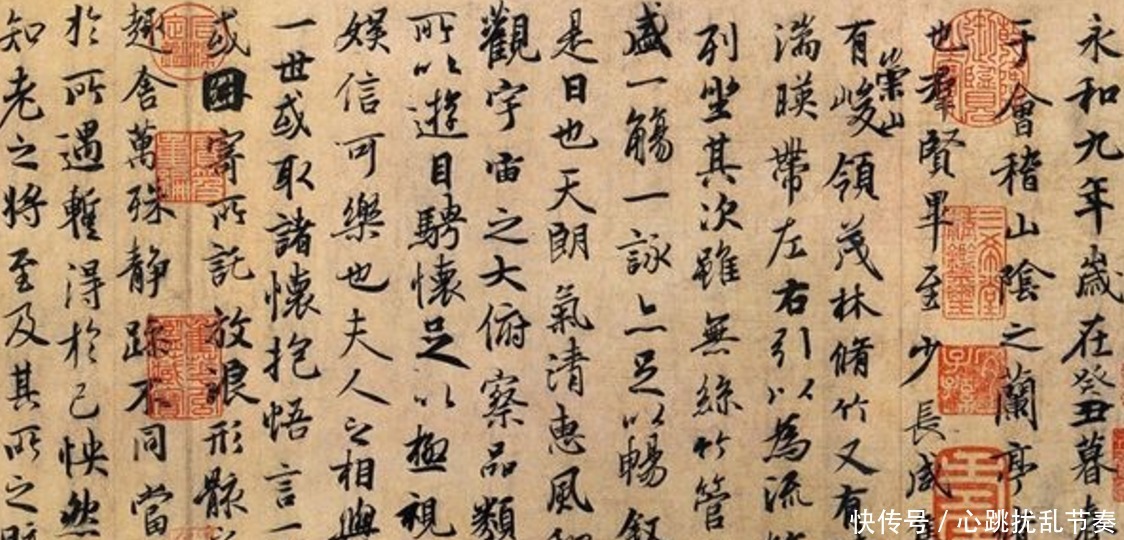 永和九年歲在癸丑暮
于會稽山陰之蘭亭
也群賢畢至少長咸
有崇山峻領茂林脩竹又有
湍暎帶左右引以為流
列坐其次雖無絲竹管
盛一觴一詠亦足以暢叙
是日也天朗氣清惠風
觀宇宙之大俯察品類
所以遊目騁懷足以極視
娛信可樂也夫人之相與
一世或取諸懷抱悟言一
或因寄所託放浪形骸
趣舍萬殊静躁不同當
於所遇蹔得於己怏然
知老之將至及其所之
快传号/心跳扰乱节奏